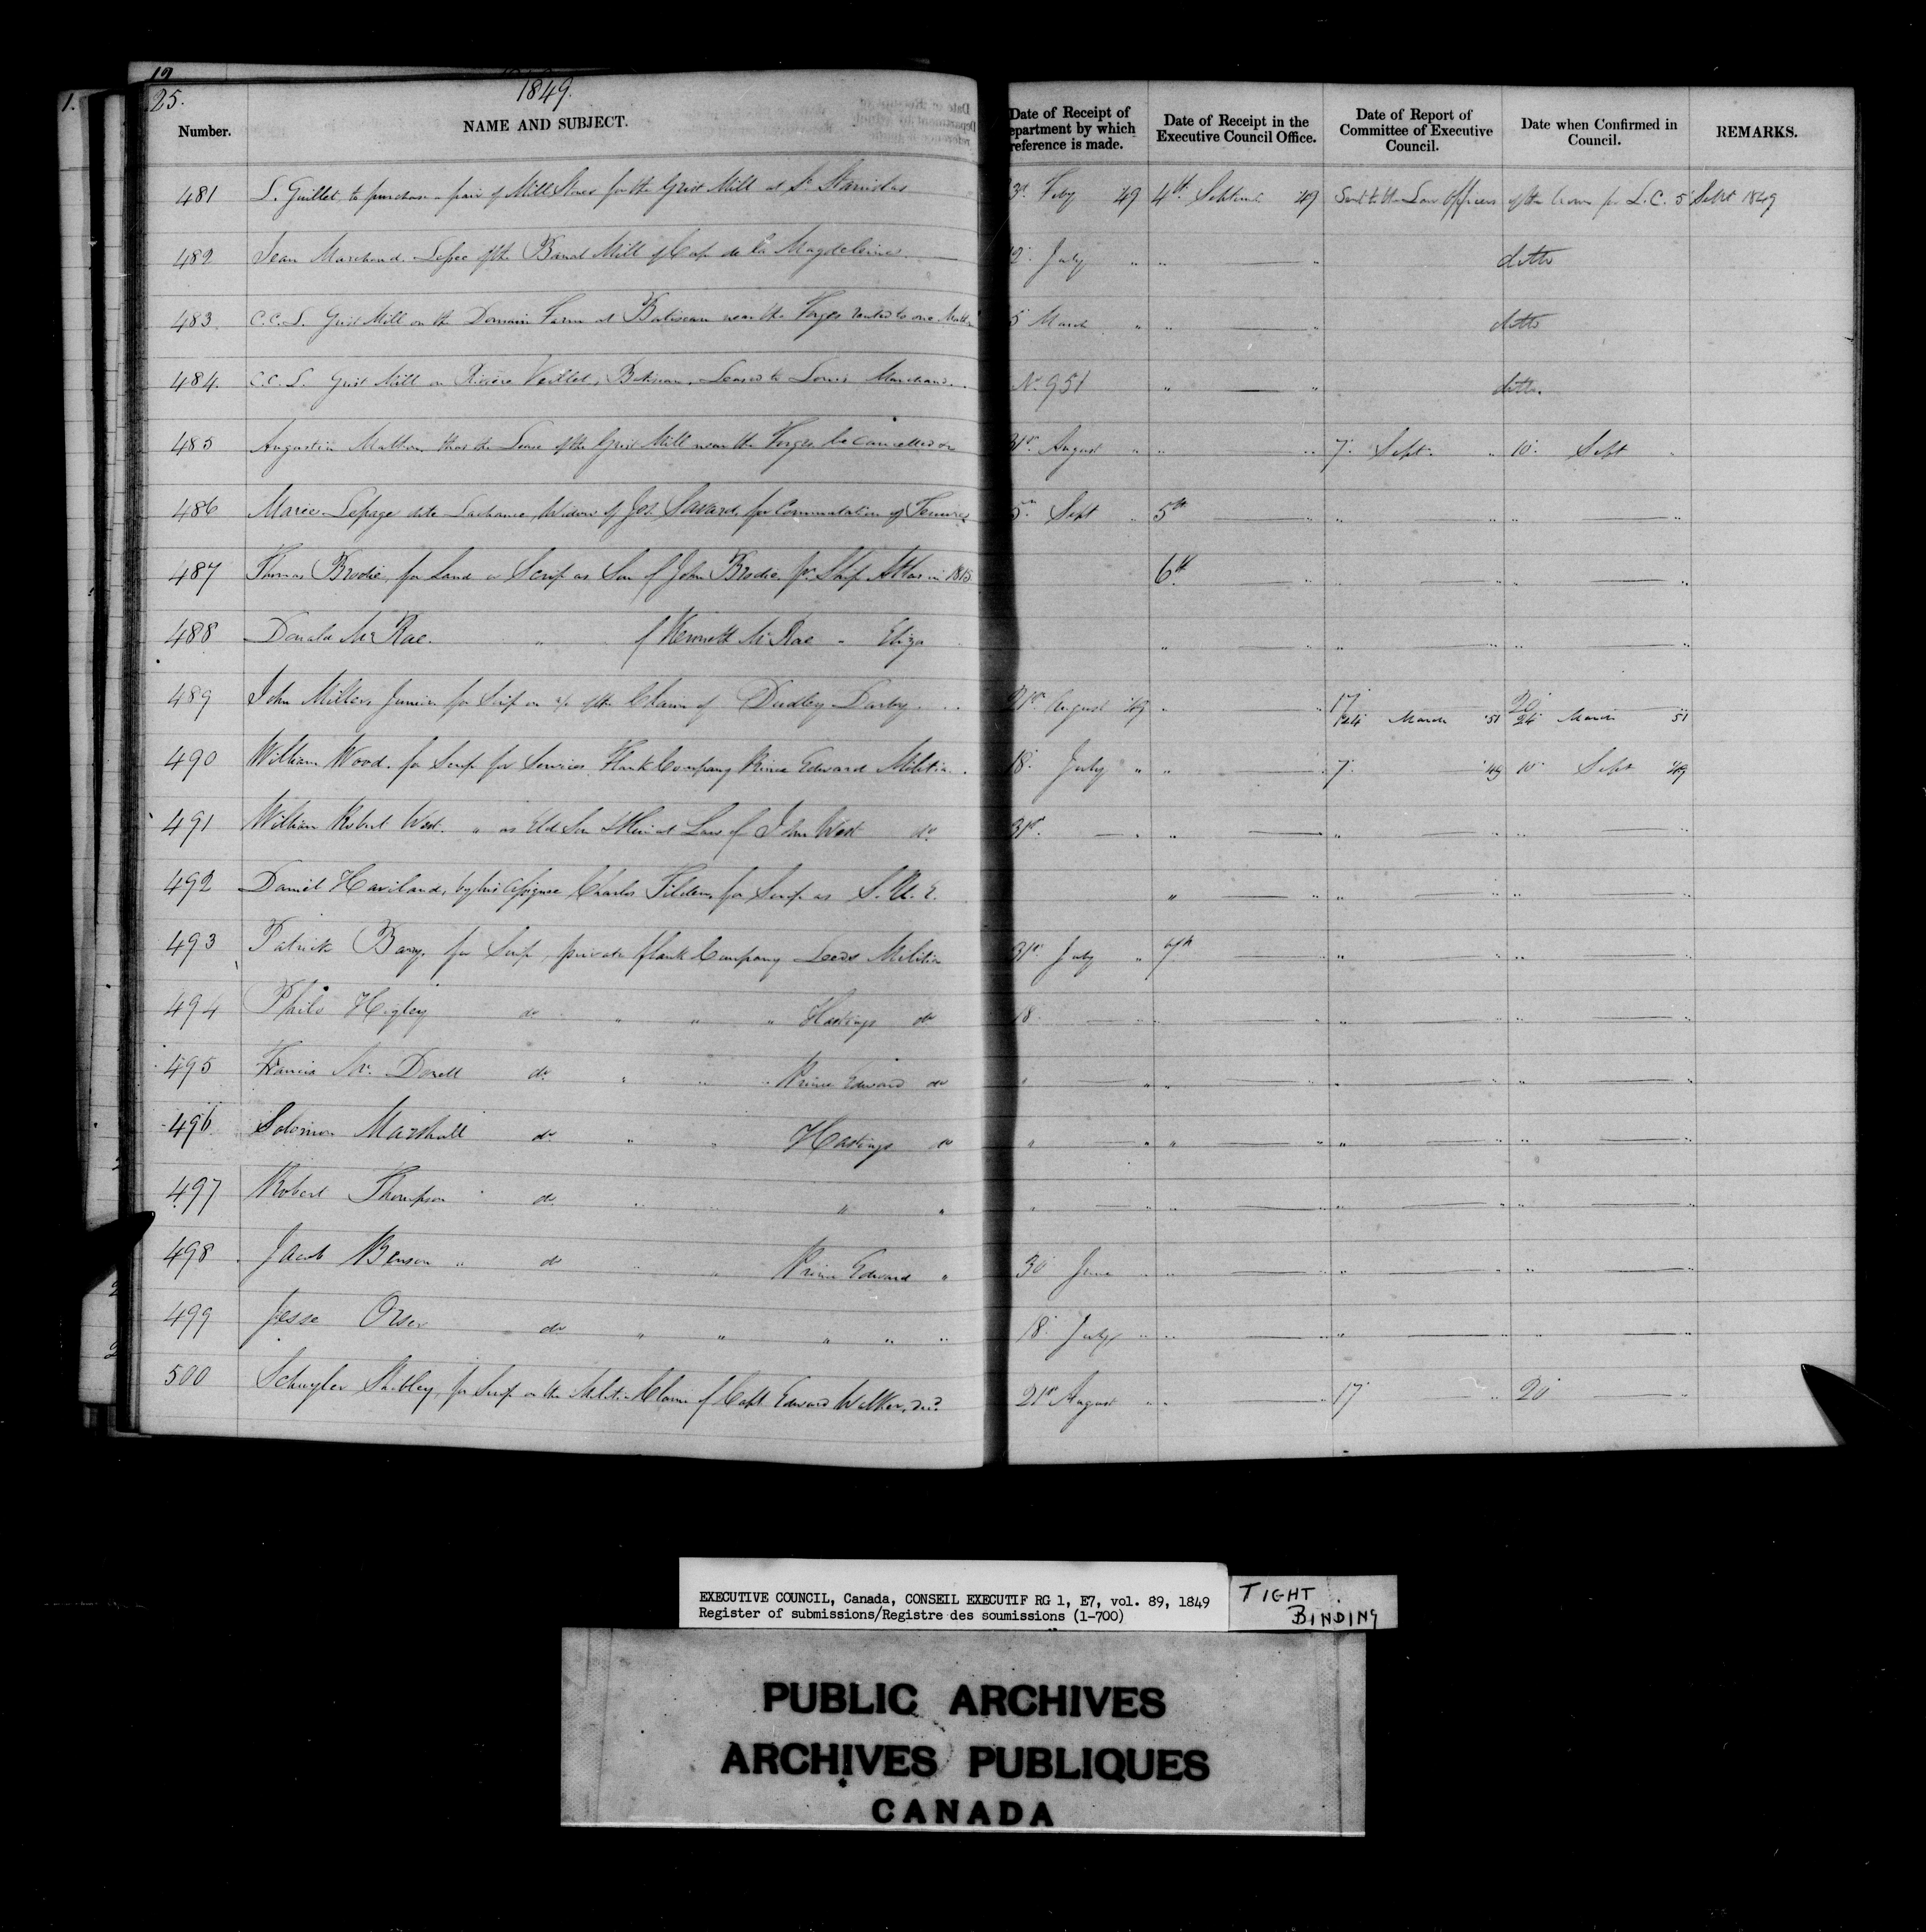 19
1.
25. 1849.
Number. NAME AND SUBJECT. Date of Receipt of epartment by which reference is made. Date of Receipt in the Executive Council Office. Date of Report of Committee of Executive Council. Date when Confirmed in Council. REMARKS.
481 L. Guillet, to purchase a pair of Mill Stones for the Grist Mill at St. Stanislas 3d. Feby 49 4th. Septemr. 49 Sent to the Law Officers of the Crown for L.C. 5 Sept 1849
482 Jean Marchand. Lessee of the Banal Mill of Cap de la Magdeleine. 2 July " " — " ditto
483 C.C.L. Grist Mill on the Domain Farm at Batiscan near the Forges rented to one 5 March " " — " ditto
484. C.C.L. Grist Mill on Rivière Veillet, Batiscan, Leased to Louis Marchand. No. 951 " — " ditto.
485 Augustin Mathon that the Lease of the Grist Mill near the Forges be cancelled 31st. August " " — " 7. Sept. " 10. Sept "
486 Marie Lepage dite Lachance, Widow of Jos. Savard, for Commutation of Tenure 5th Sept " 5th — " " — " " — "
487 Thomas Brodie, for Land or Scrip as Son of John Brodie pr. Ship Atlas in 1815 6th — " " — " " — "
488 Donald McRae. " of Kennett McRae " Eliza " — " " — " " — "
489 John Miller Junior for Scrip on a/c of the Claim of Dudley Darby. 21st August 49 " — " 17 March 51 20 24 March 51
490 William Wood. for Scrip for Services Flank Company Prince Edward Militia. 18. July " " — " 7. 49 10 Sept 49
491 William Robert West. " as Eld Son & Heir at Law of John West do. 31st. — " " — " " — " " — "
492 Daniel Haviland, by his Assignee Charles Tilden, for Scrip as S.U.E. " — " " — " " — "
493 Patrick Barry, for Scrip, private flank Company Leeds Militia 31st July " 7th — " " — " " — "
494 Philo Higley do " " " Hastings do 18 — " " — " " — " " — "
495 Francis Mc. do. " " " Prince Edward do " — " " — " " — " " — "
496 Solomon Marshall do " " Hastings do " — " " — " " — " " — "
497 Robert Thompson do " " " " " — " " — " " — " " — "
498 Jacob Benson " do " " Prince Edward " 30 June " " — " " — " " — "
499 Jesse Orser do " " " " " 18 July " " — " " — " " — "
500 Schuyler Shibley, for Scrip on the Militia Claim of Capt Edward Walker, Decd. 21st August " " — " 17 — " 20 — "
EXECUTIVE COUNCIL, Canada, CONSEIL EXECUTIF RG 1, E7, vol. 89, 1849
Register of submissions/Registre des soumissions (1-700)
TIGHT
BINDING
PUBLIC ARCHIVES
ARCHIVES PUBLIQUES
CANADA